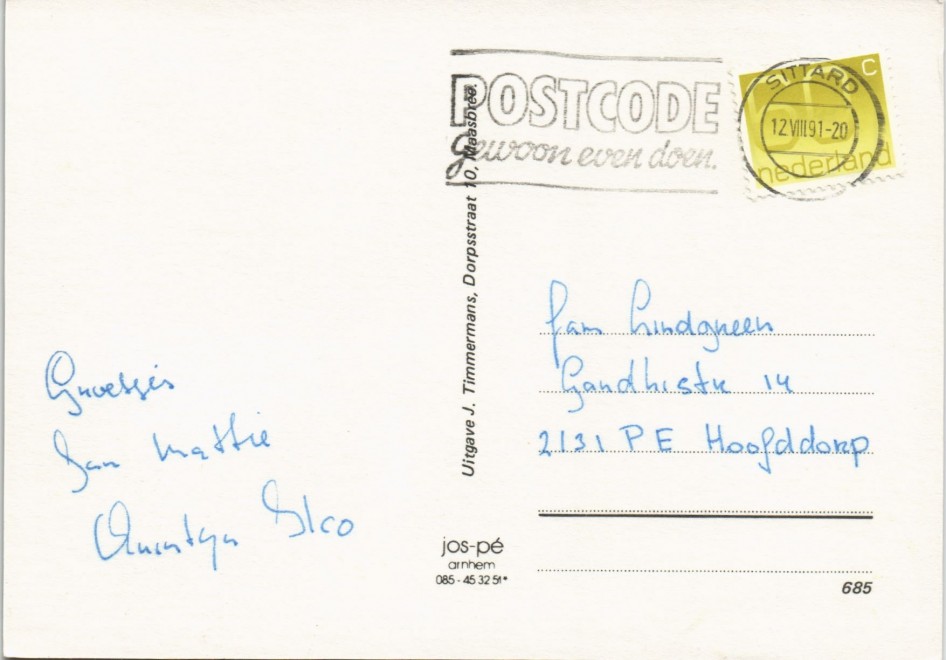 POSTCODE
gewoon even doen.
SITTARD
12 VIII 91-20
C
nederland
Uitgave J. Timmermans, Dorpsstraat 10, Maasbree.
Groetjes
Jan Mattie
Quintyn Elco
Fam Lindgreen
Gandhistr 14
2131 PE Hoofddorp
jos-pé
arnhem
085 - 45 32 51*
685